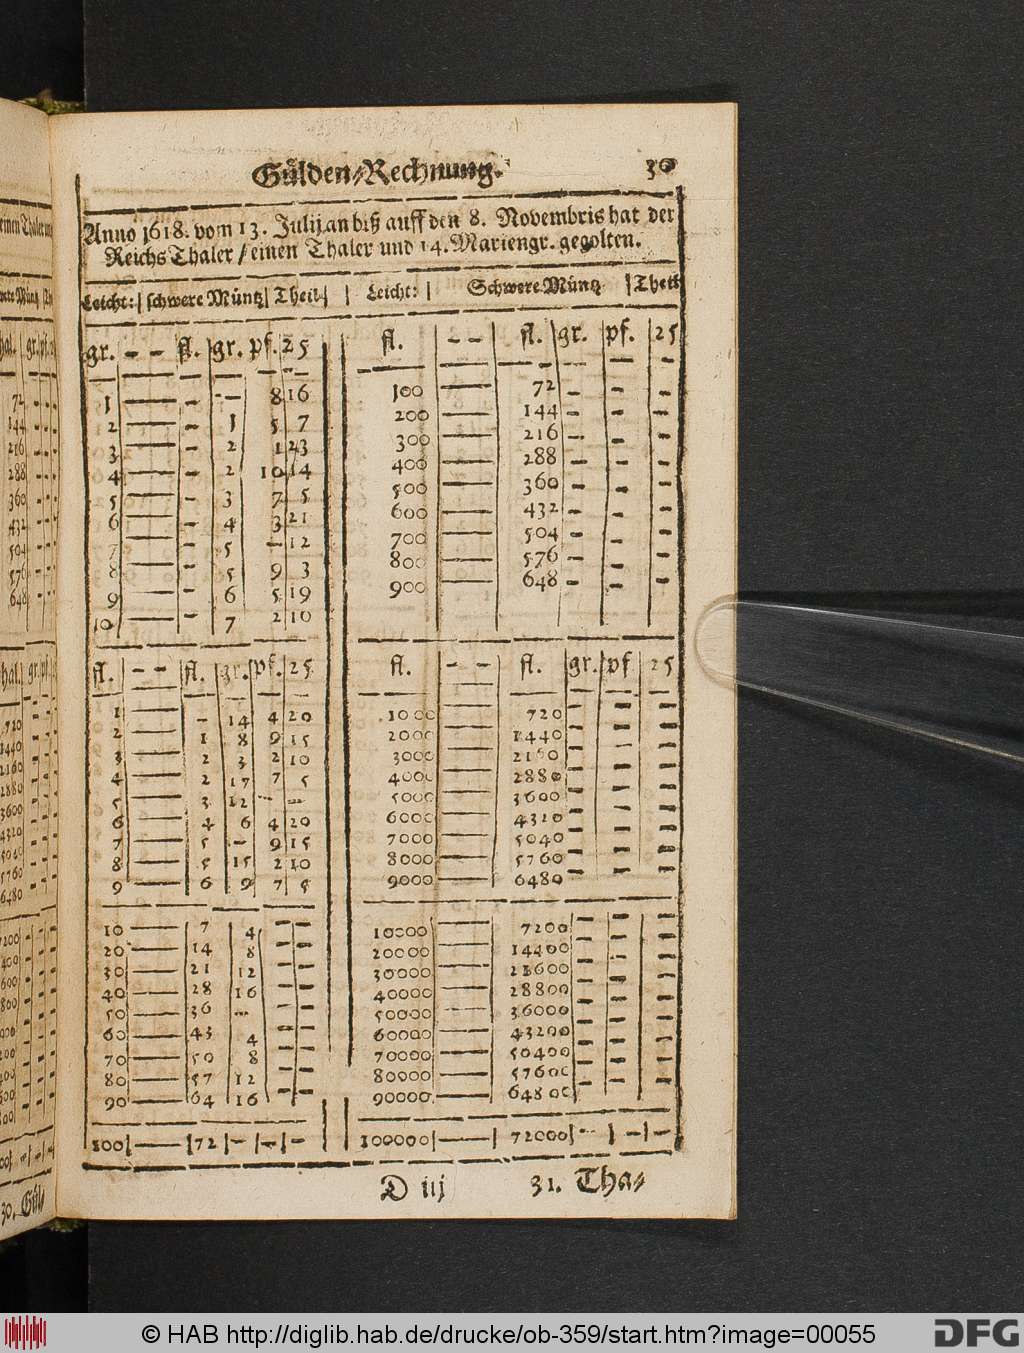 Gülden-Rechnung. 30
Anno 1618. vom 13. Julij an biß auff den 8. Novembris hat der
Reichs Thaler / einen Thaler und 14. Mariengr. gegolten.
Leicht: | schwere Müntz | Theil | Leicht: | Schwere Müntz | Theil
gr. - - fl. gr. pf. 25
1 — - - 8 16
2 — - 1 5 7
3 — - 2 1 23
4 — - 2 10 14
5 — - 3 7 5
6 — - 4 3 21
7 — - 5 - 12
8 — - 5 9 3
9 — - 6 5 19
10 — - 7 2 10
fl. - - fl. gr. pf. 25
1 — - 14 4 20
2 — 1 8 9 15
3 — 2 3 2 10
4 — 2 17 7 5
5 — 3 12 - -
6 — 4 6 4 20
7 — 5 - 9 15
8 — 5 15 2 10
9 — 6 9 7 5
10 — 7 4 - -
20 — 14 8 - -
30 — 21 12 - -
40 — 28 16 - -
50 — 36 - - -
60 — 43 4 - -
70 — 50 8 - -
80 — 57 12 - -
90 — 64 16 - -
100 — 72 - - -
fl. - - fl. gr. pf. 25
100 — 72 - - -
200 — 144 - - -
300 — 216 - - -
400 — 288 - - -
500 — 360 - - -
600 — 432 - - -
700 — 504 - - -
800 — 576 - - -
900 — 648 - - -
fl. - - fl. gr. pf 25
1000 — 720 - - -
2000 — 1440 - - -
3000 — 2160 - - -
4000 — 2880 - - -
5000 — 3600 - - -
6000 — 4320 - - -
7000 — 5040 - - -
8000 — 5760 - - -
9000 — 6480 - - -
10000 — 7200 - - -
20000 — 14400 - - -
30000 — 21600 - - -
40000 — 28800 - - -
50000 — 36000 - - -
60000 — 43200 - - -
70000 — 50400 - - -
80000 — 57600 - - -
90000 — 64800 - - -
100000 — 72000 - - -
D iij 31. Tha-
30. Gül-
© HAB http://diglib.hab.de/drucke/ob-359/start.htm?image=00055
DFG